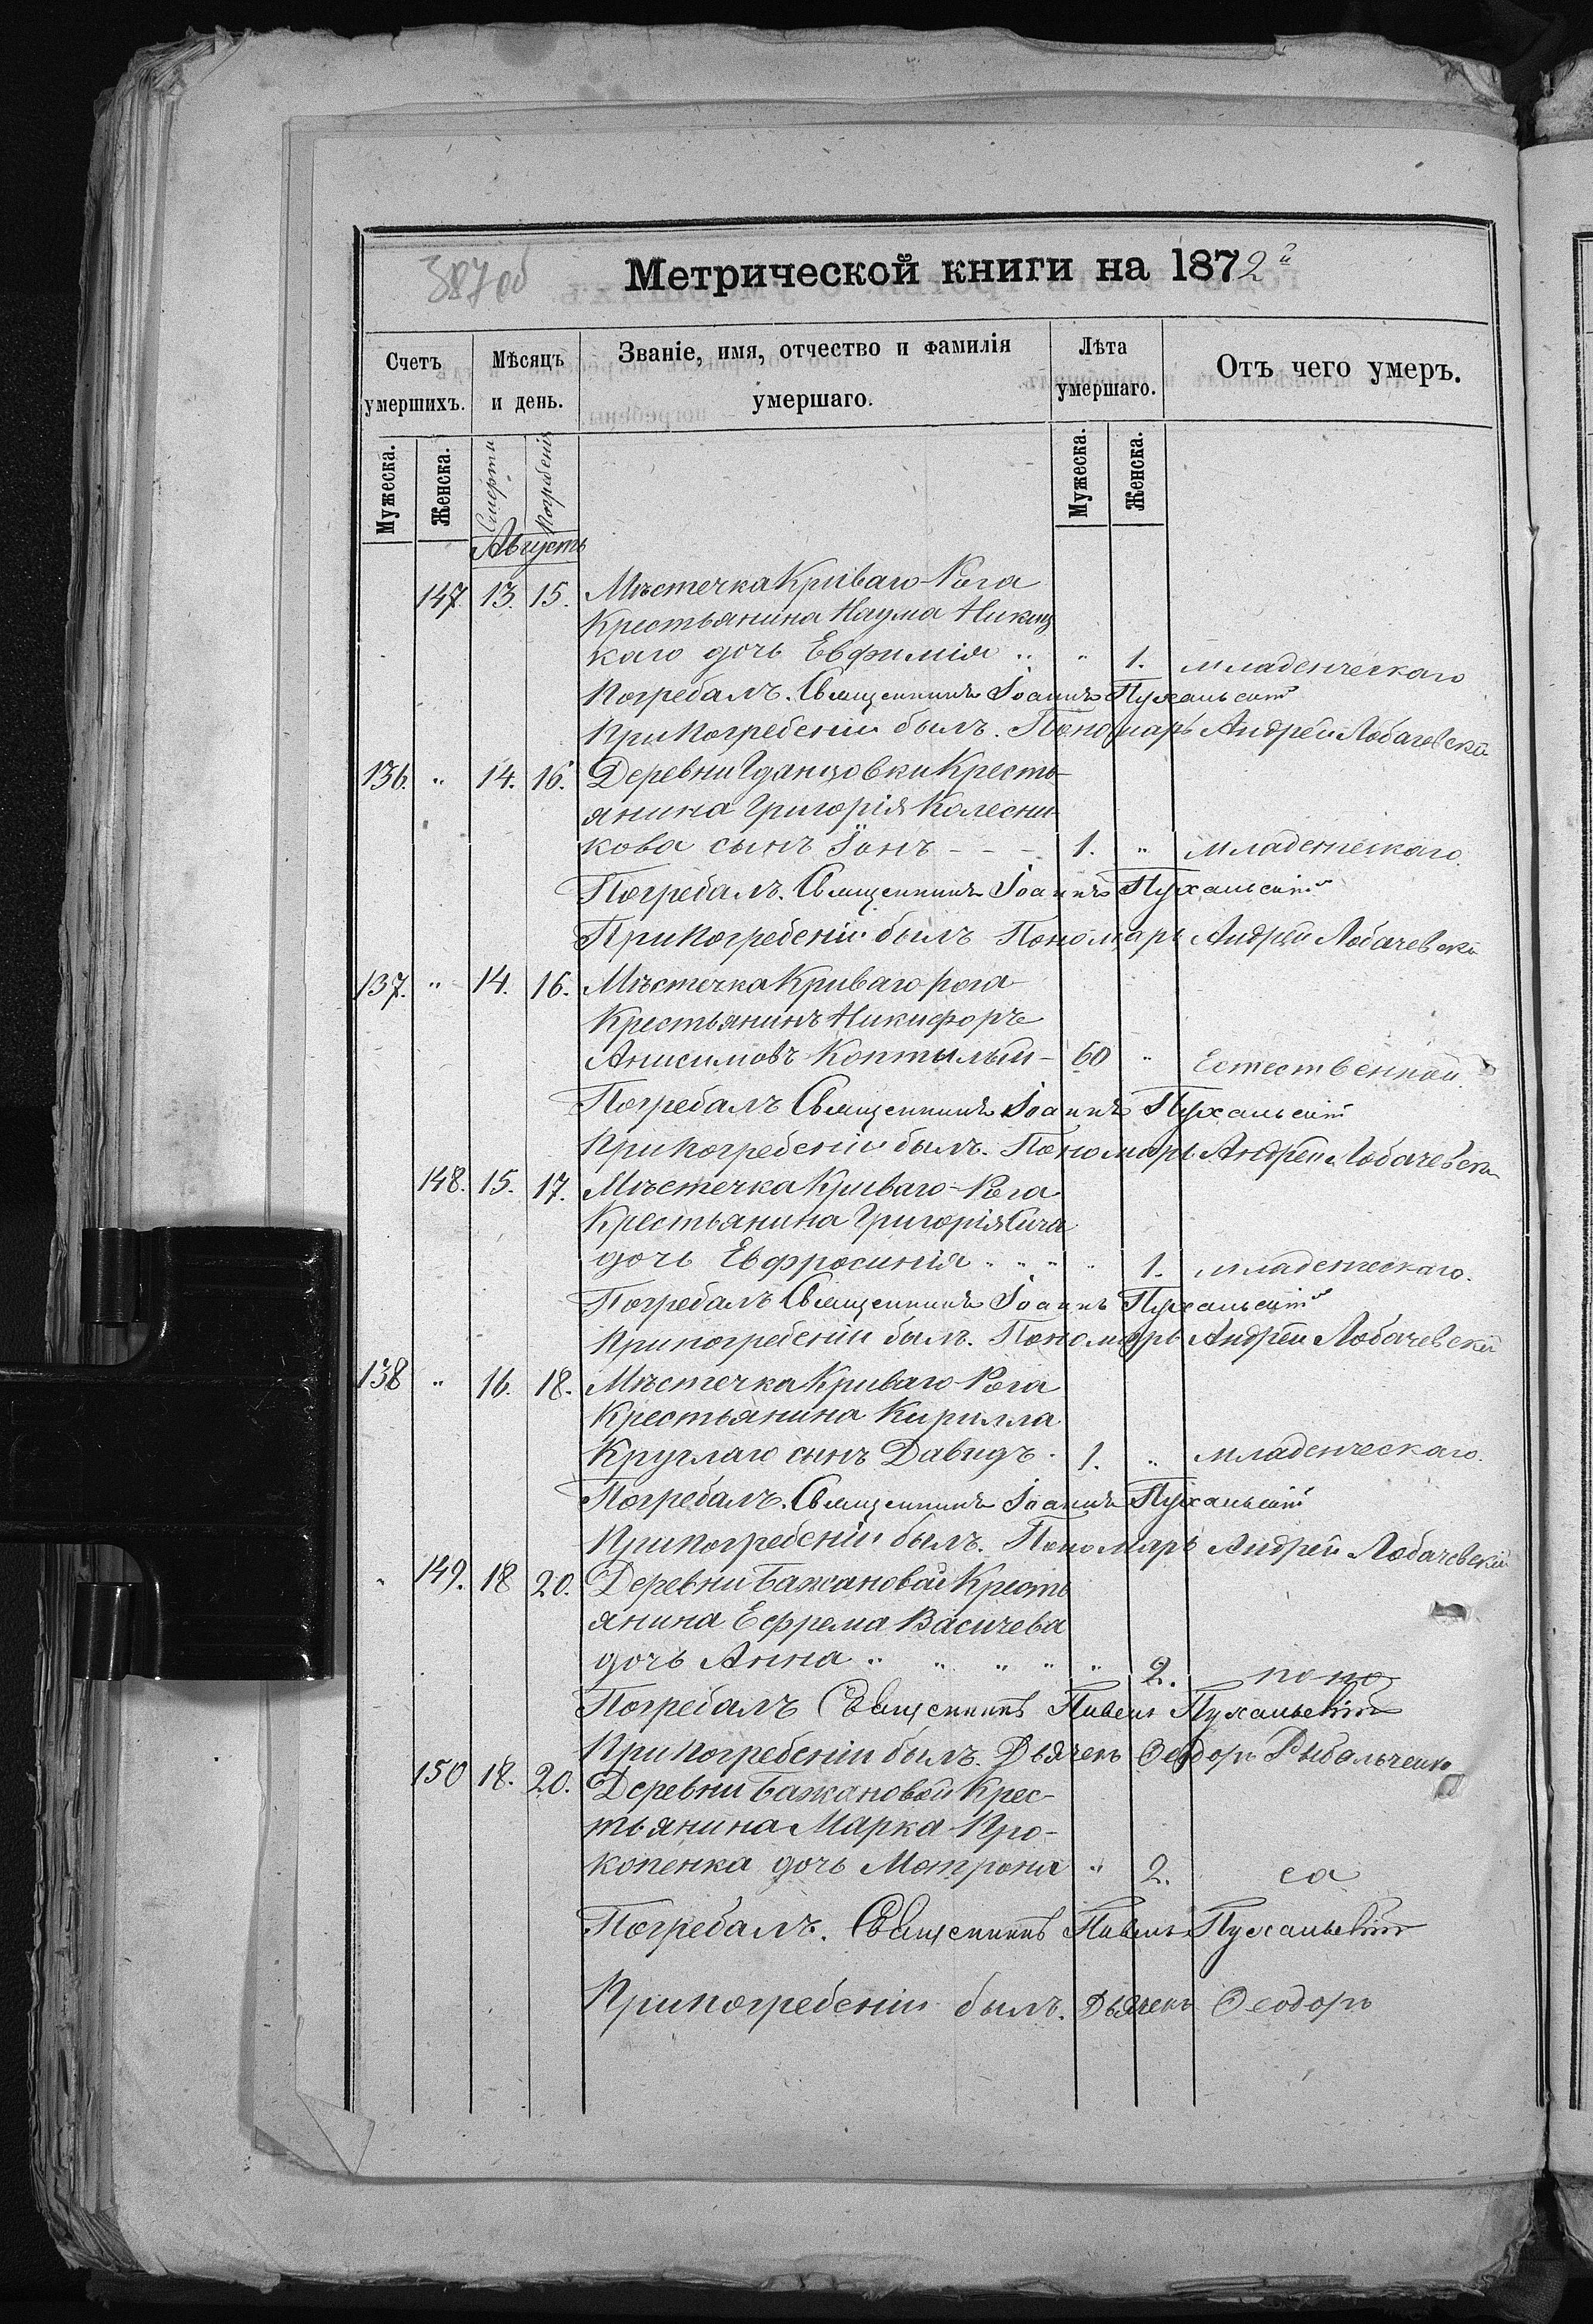 387 об
Метрической книги на 1872й
Счетъ умершихъ. Мѣсяцъ и день. Званіе, имя, отчество и фамилія умершаго. Лѣта умершаго. Отъ чего умеръ.
Мужеска. Женска. Смерти Погребенія Мужеска. Женска.
Августъ
147. 13. 15. Мѣстечка Криваго-Рога
Крестьянина Наума Никиц
каго дочь Евфимія " " 1. младенческаго
Погребалъ. Священникъ Іоаннъ Пухальскій
При погребеніи былъ. Пономарь Андрей Лобачевскій
136. " 14. 16. Деревни Гданцовки Кресть-
янина Григорія Колесни-
кова сынъ Іонъ - - - 1. " младенческаго.
Погребалъ. Священникъ Іоаннъ Пухальскій
При погребеніи былъ Пономарь Андрей Лобачевскій
137. " 14. 16. Мѣстечка Криваго рога
Крестьянинъ Никифоръ
Анисимовъ Коптилый - 60 " Естественной.
Погребалъ Священникъ Іоаннъ Пухальскій
При погребеніи былъ. Пономарь Андрей Лобачевскій
148. 15. 17. Мѣстечка Криваго-Рога
Крестьянина Григорія
дочь Евфросинія " " " " 1. младенческаго.
Погребалъ Священникъ Іоаннъ Пухальскій
При погребеніи былъ. Пономарь Андрей Лобачевскій
138 " 16. 18. Мѣстечка Криваго-Рога
Крестьянина Кирилла
Круглаго сынъ Давидъ. 1. " младенческаго.
Погребалъ. Священникъ Іоаннъ Пухальскій
При погребеніи былъ. Пономарь Андрей Лобачевскій
" 149. 18 20. Деревни Бажановой Кресть
янина Ефрема Васичева
дочь Анна " " " " " 2. поно
Погребалъ Священникъ Павелъ Пухальскій
При погребеніи былъ. Дьячекъ Ѳеодоръ Рыбальченко
150 18. 20. Деревни Бажановой Крес-
тьянина Марка Про-
копенка дочь Мотрона " 2. са
Погребалъ. Священникъ Павелъ Пухальскій
При погребеніи былъ. Дьячекъ Ѳеодоръ